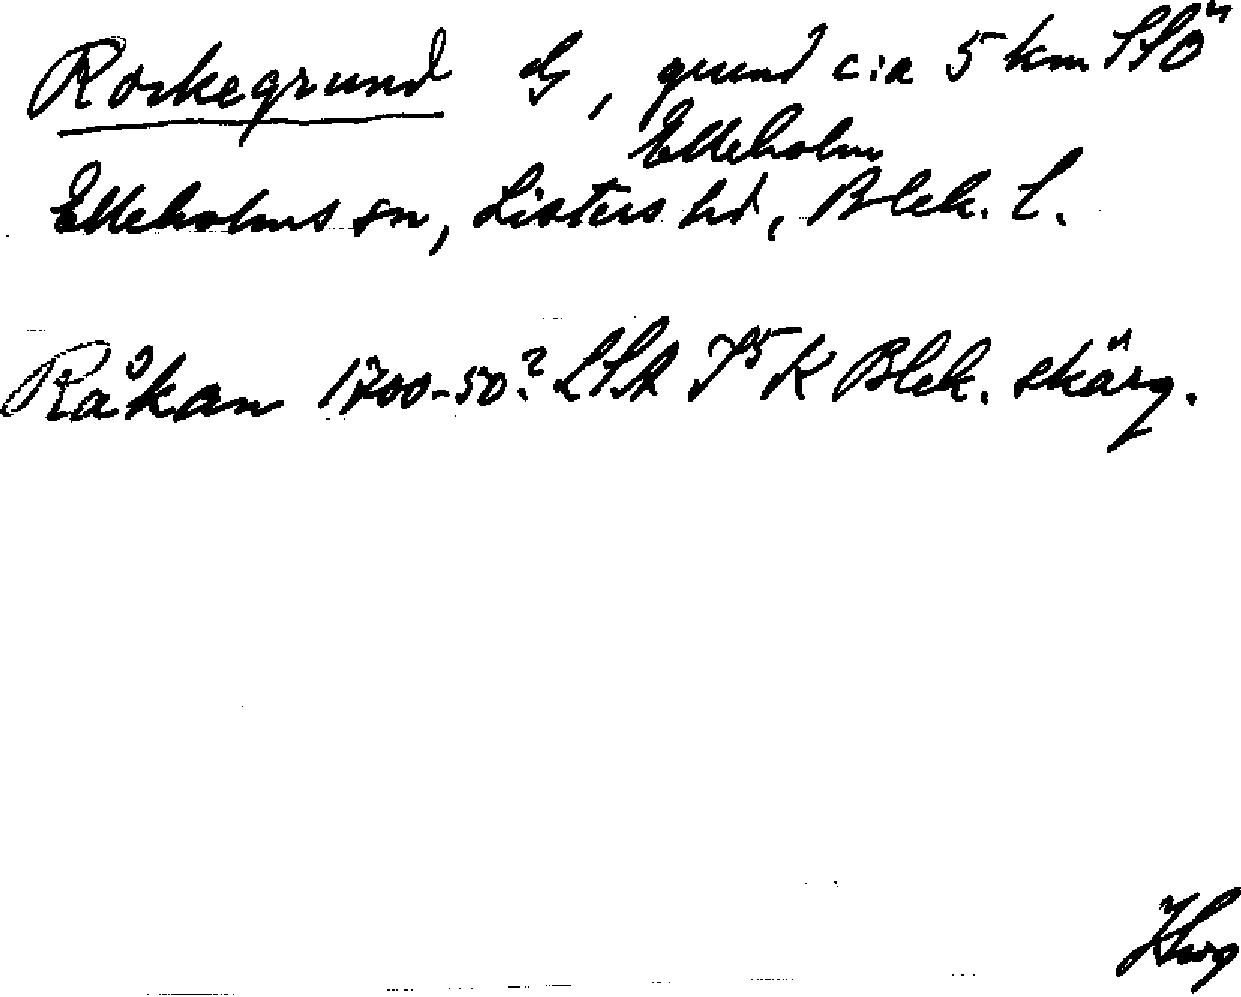 Rorkegrund G, grund c:a 5 km SSÖ
Elleholm
Elleholms sn, Listers hd, Blek. l.
Råkan 1700-50? LSA I⁵ K Blek. skärg.